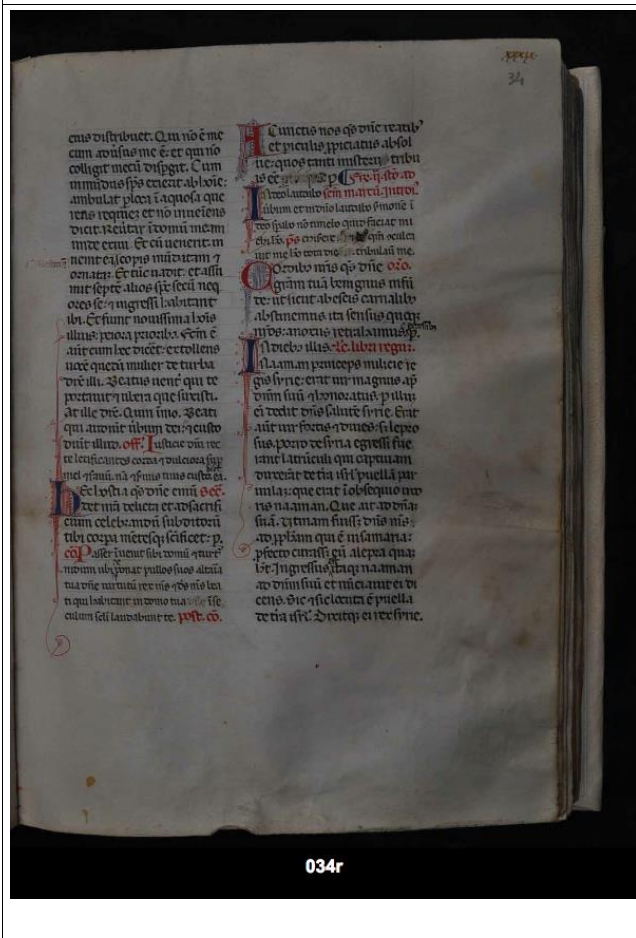 xxxiv
34
eius distribuet. Qui nō ē me
cum adūsus me ē: et qui nō
colligit mecū dispgit. Cum
inmūdus sps exierit ab hoīe:
ambulat p loca īaquosa que
rens requiez et nō inueīens
dicit. Reūtar ī domū meam
unde exiui. Et cū uenerit in
uenit eā scopis mūdatam et
ornatā. Et tūc uadit. et assu
mit septē alios sps secū neq
ores se: et ingressi habitant
ibi. Et fiunt nouissima hoīs
illius: peiora priorib. Fcm ē
aūt cum hec dicet: extollens
uocē quedā mulier de turba
dix illi. Beatus uent qui te
portauit et ubera que suxisti.
At ille dix. Quin imo. Beati
qui audiūt ūbum dei: et custo
diūt illud. off. Iusticie dn̄i rec
te letificantes corda et dulciora sup
mel et fauū. nā et seruus tuus custo. ea.
Hec hostia qs dn̄e emū sec̄.
det nr̄a delicta et ad sacrifi
cium celebrandū subditorū
tibi corpa mētesq; scīficet. p.
cō Passer īuenit sibi domū et turt
nidum ubi ponat pullos suos altaria
tua dn̄e uirtutū rex ms et ds ms bea
ti qui habitant in domo tua īse
culum scli laudabunt te. post. cō.
A Cunctis nos qs dn̄e reatib
et piculis ppiciatus absol
ue: quos tanti misterii tribu
is eē
In deo laudabo
ūbum et in dn̄o laudabo smonē ī
deo spabo nō timebo quid faciat mi
chi hō. ps
Cordib nr̄is qs dn̄e oro.
gr̄am tuā benignus infū
de: ut sicut ab escis carnalib
abstinemus ita sensus quoq;
nr̄os: a noxiis retrahamus
In dieb illis. lc̄. libri regum.
Naaman princeps milicie re
gis syrie: erat uir magnus ap̄
dn̄m suū et honoratus. p illū
eī dedit dn̄s salutē syrie. Erat
aūt uir fortis et diues: s lepro
sus. porro de syria egressi fue
rant latrūculi et captiuam
duxerāt de tr̄a isrl puellā par
uulaz: que erat ī obsequio uxo
ris naaman. Que ait ad dnā
suā. Utinam fuisset dn̄s ms
ad pphetam qui ē in samaria:
pfecto curasset eū a lepra quā
ht. Ingressus itaq; naaman
ad dn̄m suū et nūciauit ei di
cens. Sic et sic locuta ē puella
de tr̄a isrl. Dixitq; ei rex syrie.
034r